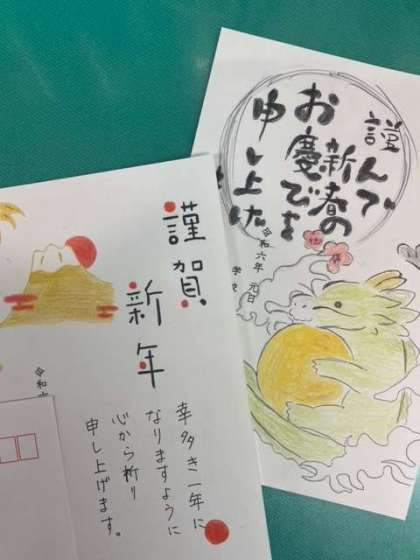 謹んで
新春の
お慶びを
申し上げ
令和六年 元日
謹賀
新年
幸多き一年に
なりますように
心から祈り
申し上げます。
令和